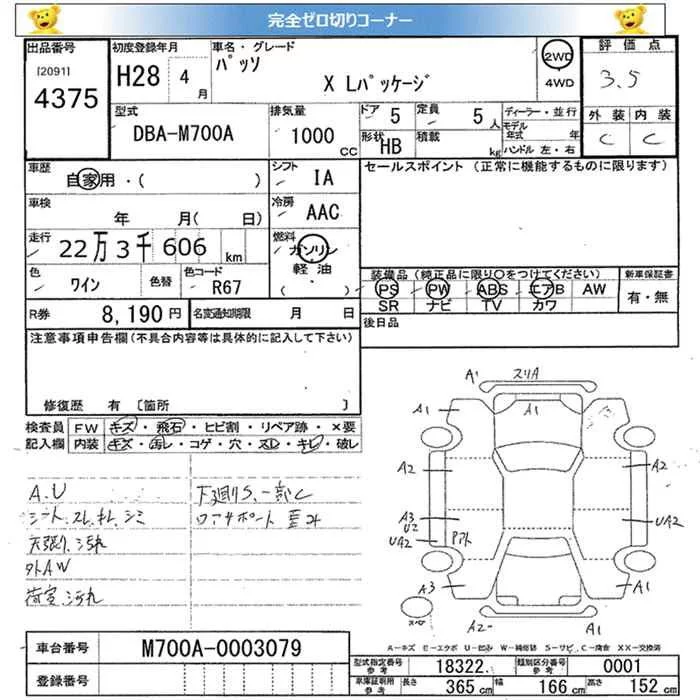 完全ゼロ切りコーナー
出品番号
[2091]
4375
初度登録年月
H28 4月
車名・グレード
パッソ
X Lパッケージ
2WD
4WD
評価点
3.5
外装 内装
C C
型式
DBA-M700A
排気量
1000 CC
ドア 5
定員 5人
形状 HB
積載 kg
ディーラー・並行
モデル年式 年
ハンドル 左・右
車歴
自家用・( )
シフト
IA
セールスポイント(正常に機能するものに限ります)
車検
年 月( 日)
冷房
AAC
走行
22万3千606 km
燃料
ガソリン
軽油
( )
色
ワイン
色替
色コード
R67
装備品(純正品に限り○をつけてください)
PS PW ABS エアB AW
SR ナビ TV カワ
新車保証書
有・無
R券 8,190円
名変通知期限 月 日
後日品
注意事項申告欄(不具合内容等は具体的に記入して下さい)
修復歴 有 [箇所 ]
検査員記入欄
FW キズ・飛石・ヒビ割・リペア跡・×要
内装 キズ・汚レ・コゲ・穴・スレ・キレ・破レ
A.U
シート、スレ、キレ、シミ
天張り、汚れ
外AW
荷室、汚れ
下廻りS、一部C
A1 スリA
A1 A1 A1
A2 A2
A3
UA2 UA2
A3 A1
A2 A1
スペア
A-キズ E-エクボ U-凹み W-補修跡 S-サビ C-腐食 XX-交換済
車台番号 M700A-0003079
登録番号
型式指定番号 参考 18322
類別区分番号 参考 0001
車庫証明用 参考 長さ 365cm 幅 166cm 高さ 152cm